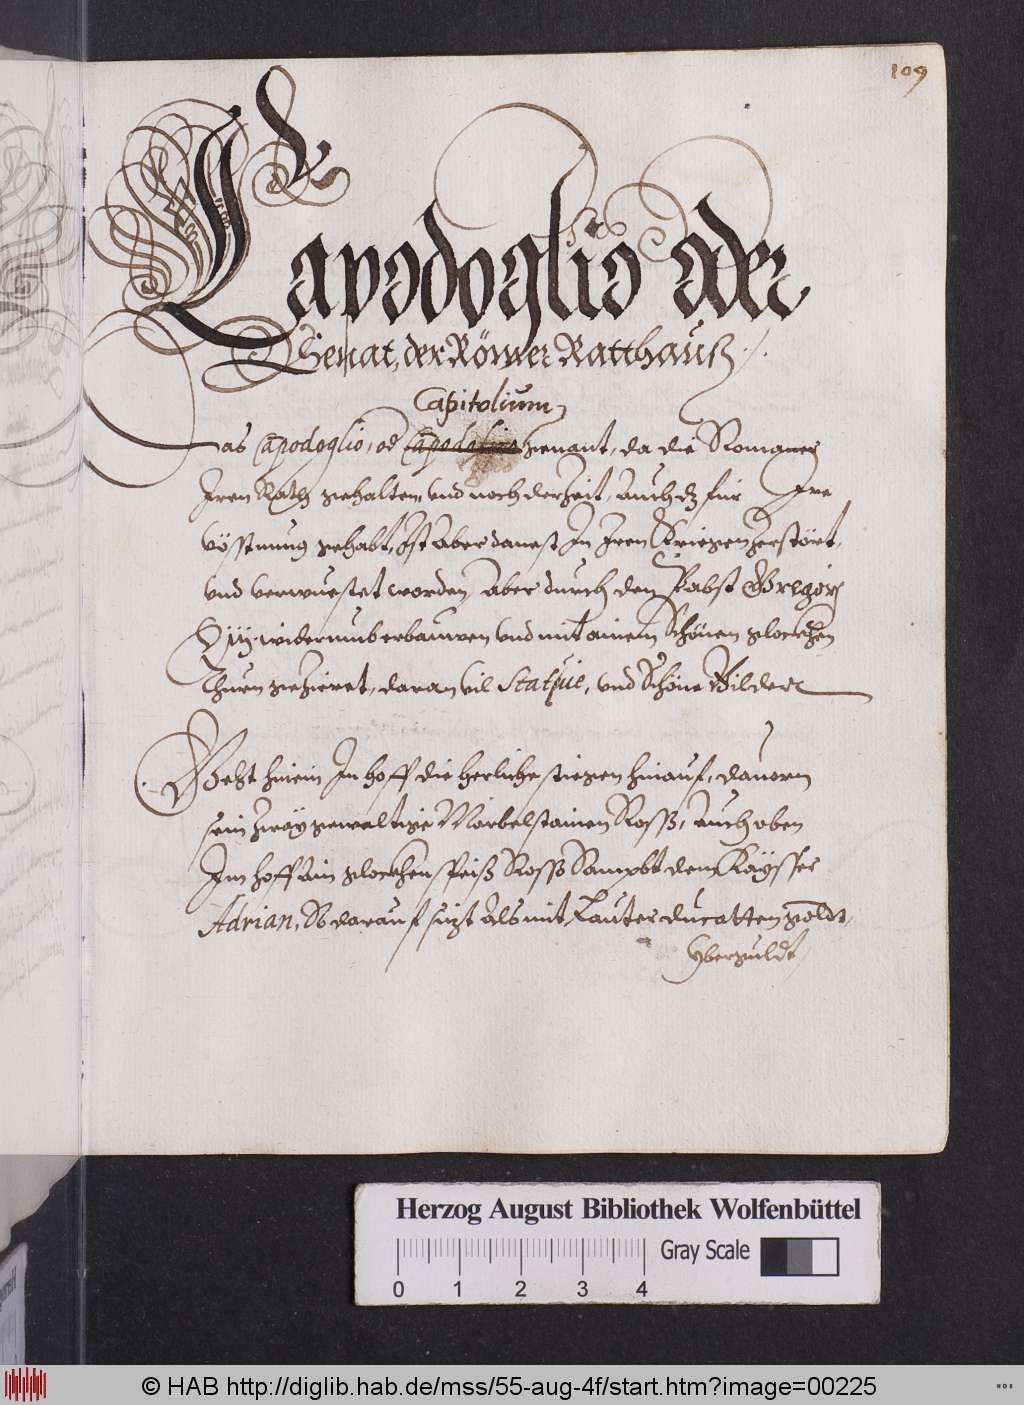 109
Capodoglio oder
Senat, der Römer Ratthauß
Capitolium
Das Capodoglio, od genant, da die Romaner
Iren Rath gehalten und noch der Zeit, auch dz für Ire
vösstnung gehabt, Ist aber danest In Iren Kriegen zerstört,
und verwuestet worden, Aber durch den Pabst Gregor
widerumb erbauwen und mit ainem Schönen glockhen
Thurn geziehret, daran vil Statuie, und Schöne Bilder
Geht hinein Im hoff die herliche stiegen hinauf, davorn
sein zway gewaltige Marbelstainen Ross, Auch oben
Im hoff ain glockhenspeiß Ross Sampbt dem Kaysser
Adrian, So darauf sitzt Als mit Lauter ducatten goldt,
yberguldt
Herzog August Bibliothek Wolfenbüttel
Gray Scale
0 1 2 3 4
© HAB http://diglib.hab.de/mss/55-aug-4f/start.htm?image=00225